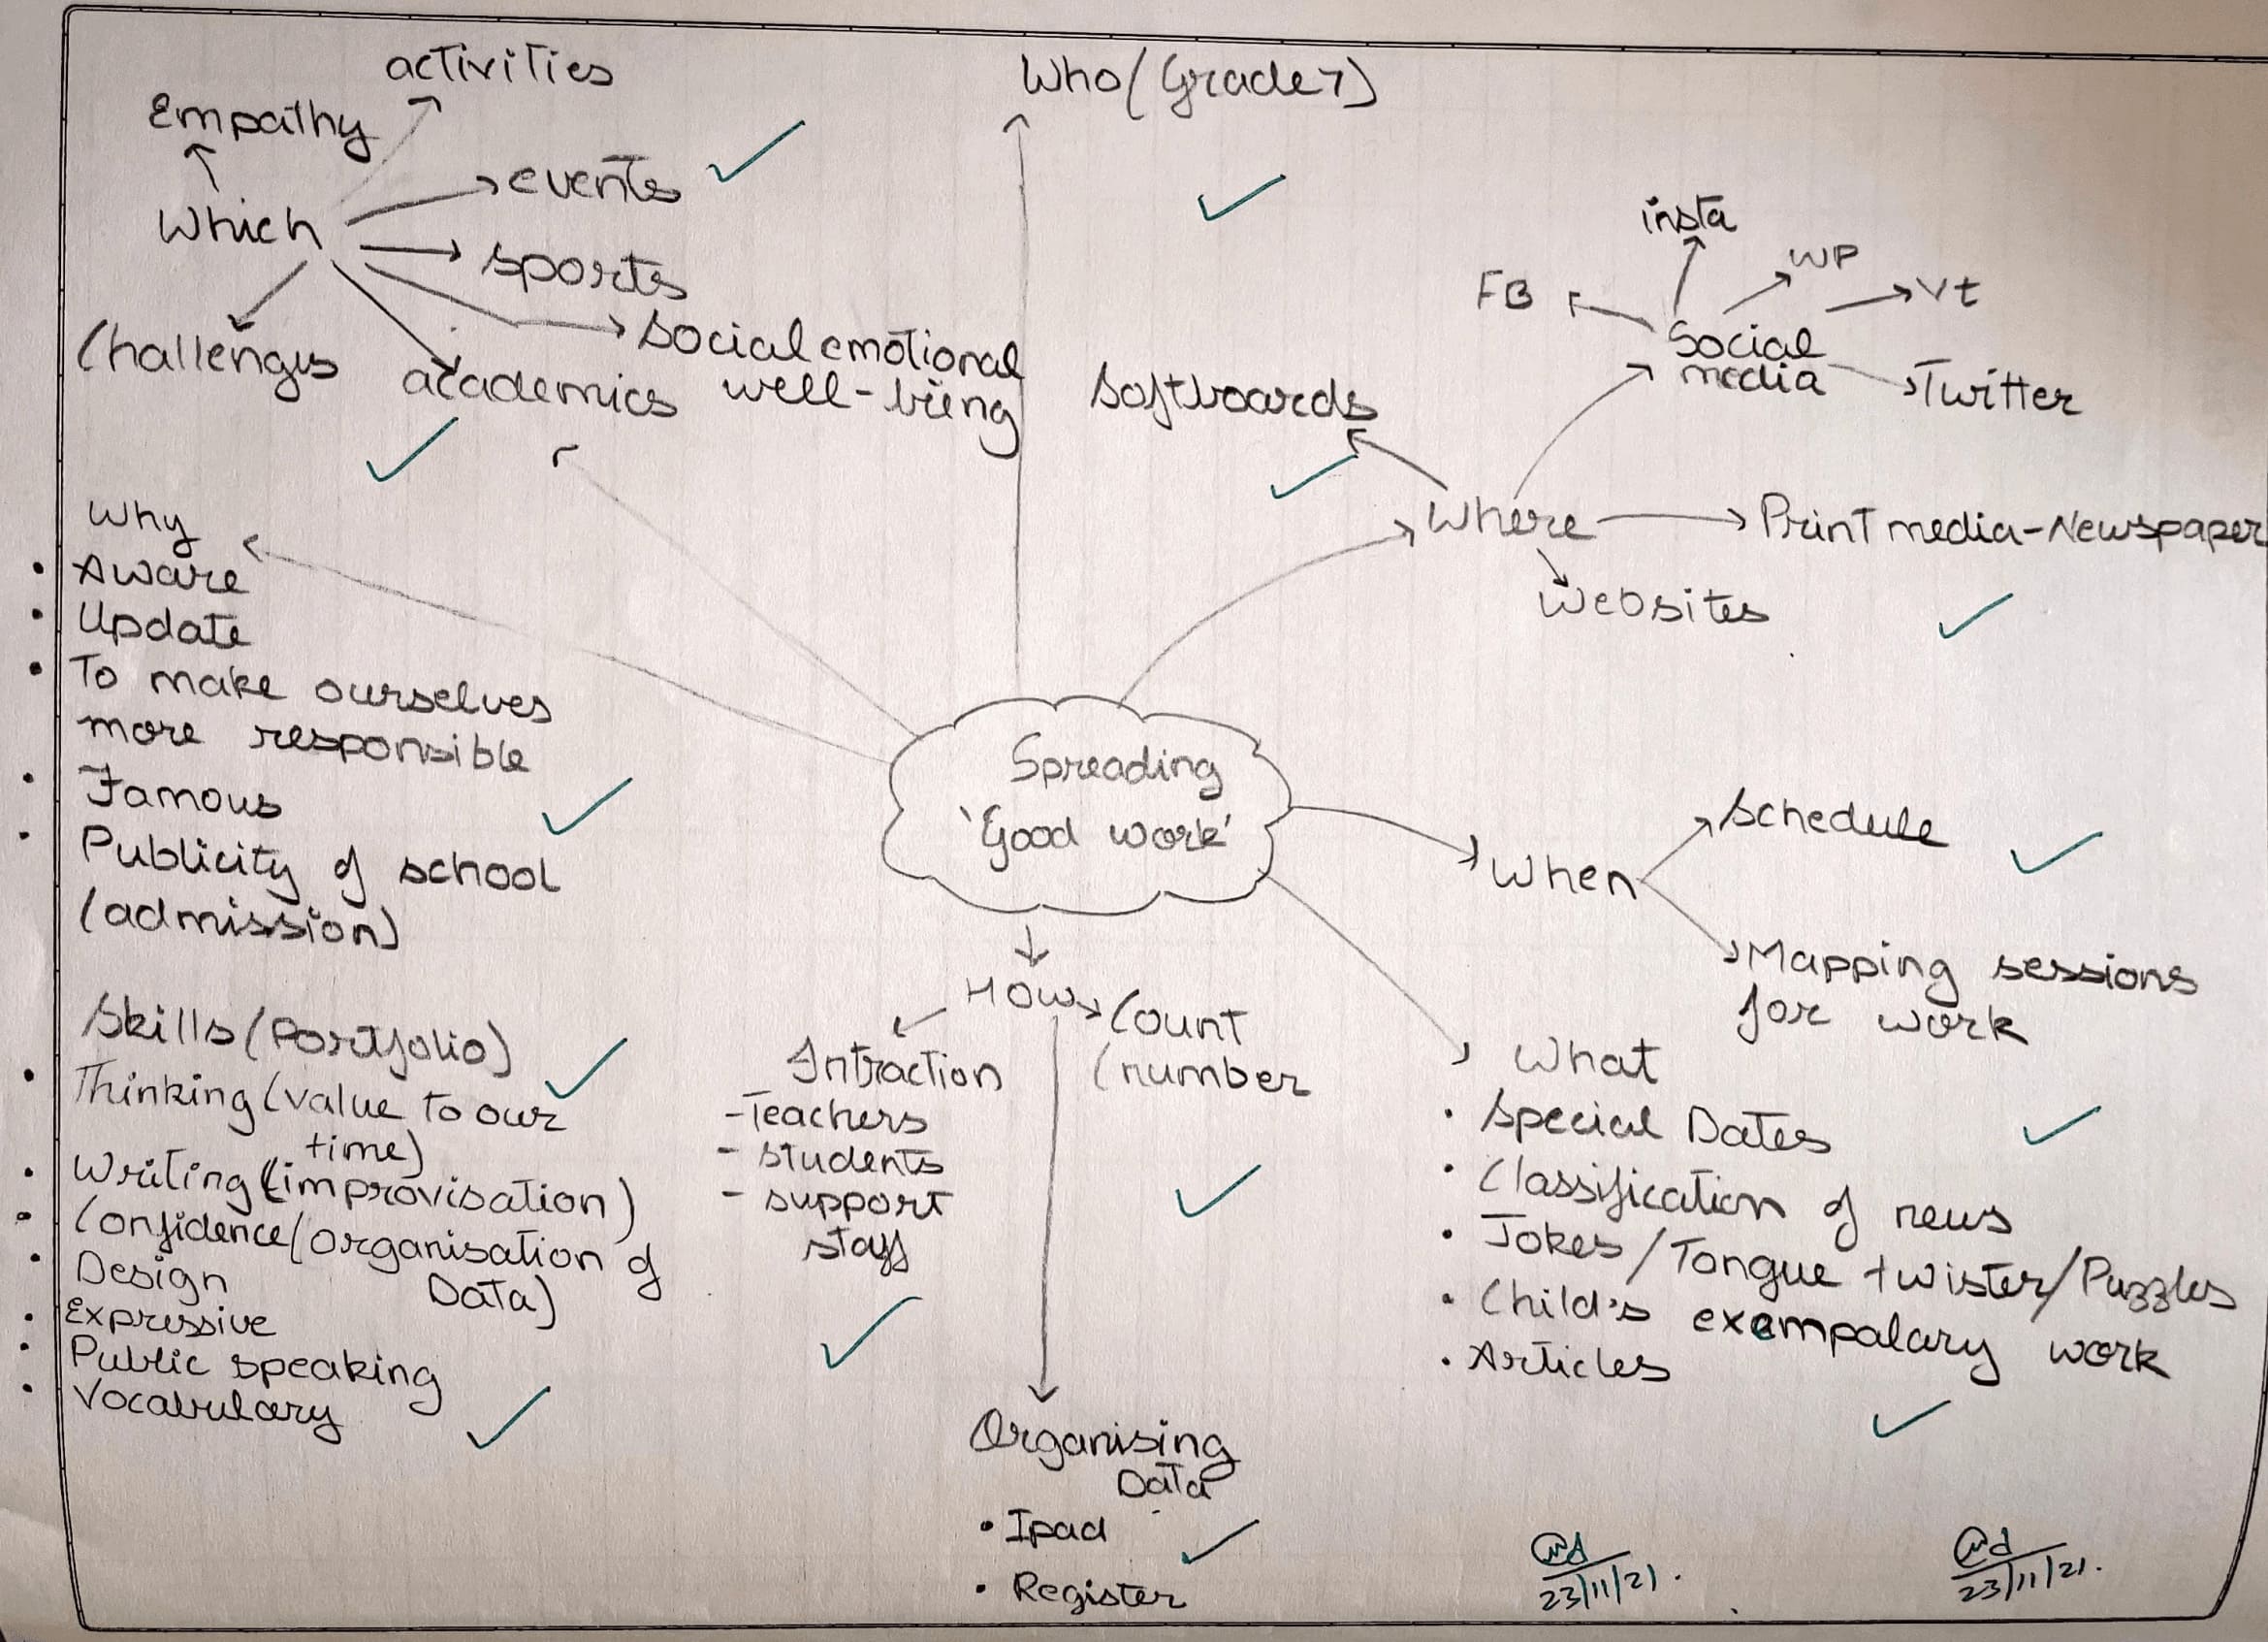 activities
Empathy
events
Which
sports
social emotional
well-being
Challenges
academics
Who (Grade 7)
insta
WP
FB
Yt
Social
media
Twitter
Softboards
Where
Print media-Newspaper
Websites
Why
• Aware
• Update
• To make ourselves
more responsible
• Famous
• Publicity of school
(admission)
Spreading
'Good work'
Schedule
When
Mapping sessions
for work
How
Count
(number
Intraction
-Teachers
- students
- support
staff
Organising
Data
• Ipad
• Register
What
• Special Dates
• Classification of news
• Jokes/Tongue twister/Puzzles
• Child's exempalary work
• Articles
Skills (Portfolio)
• Thinking (value to our
time)
• Writing (improvisation)
• Confidence/organisation of
Data)
• Design
• Expressive
• Public speaking
• Vocabulary
23/11/21.
23/11/21.